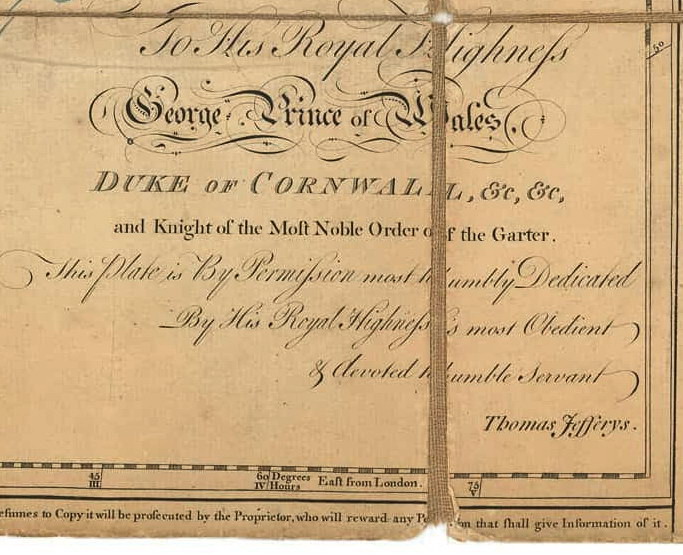 To His Royal Highneſs
George Prince of Wales,
DUKE OF CORNWALL, &c, &c,
and Knight of the Moſt Noble Order of the Garter.
This Plate is By Permiſsion most humbly Dedicated
By His Royal Highneſs's most Obedient
& devoted humble Servant
Thomas Jefferys.
50
45 60 Degrees East from London. 75
III IV Hours V
to Copy it will be proſecuted by the Proprietor, who will reward any that ſhall give Information of it.